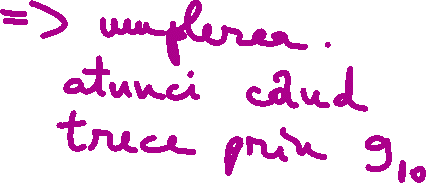 => umplerea.
atunci când
trece prin g₁₀